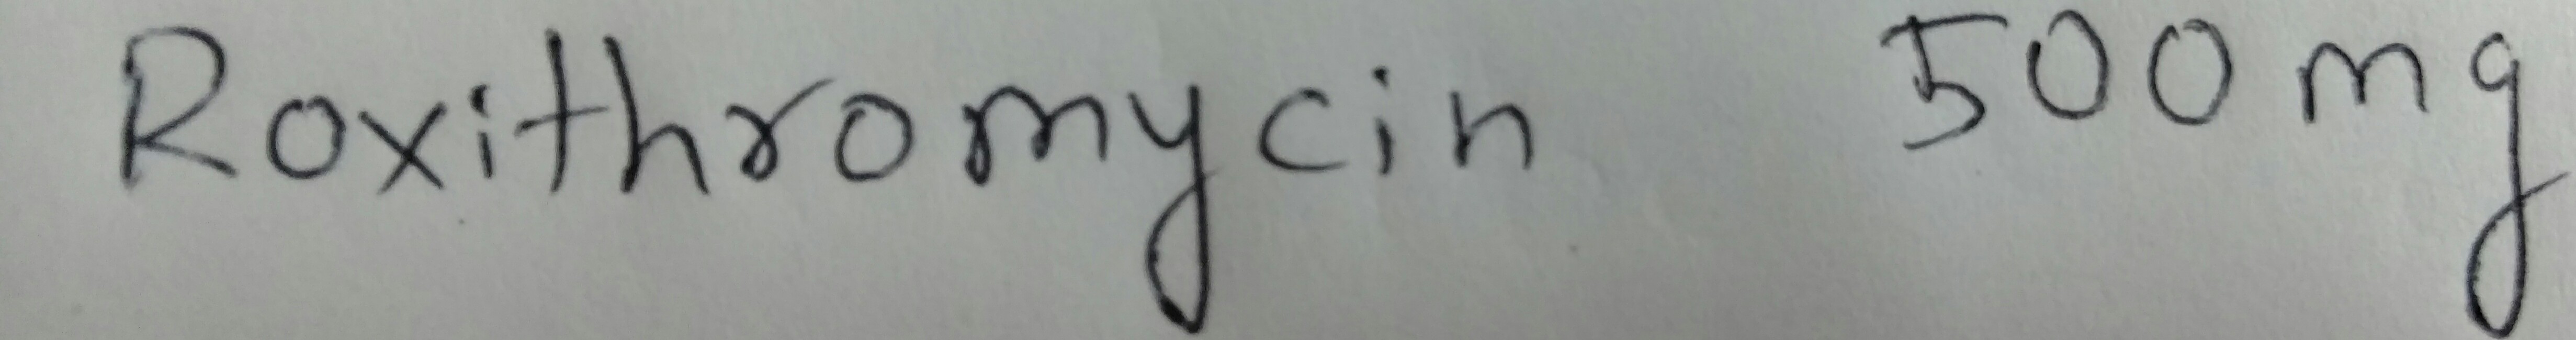 Roxithromycin 500mg